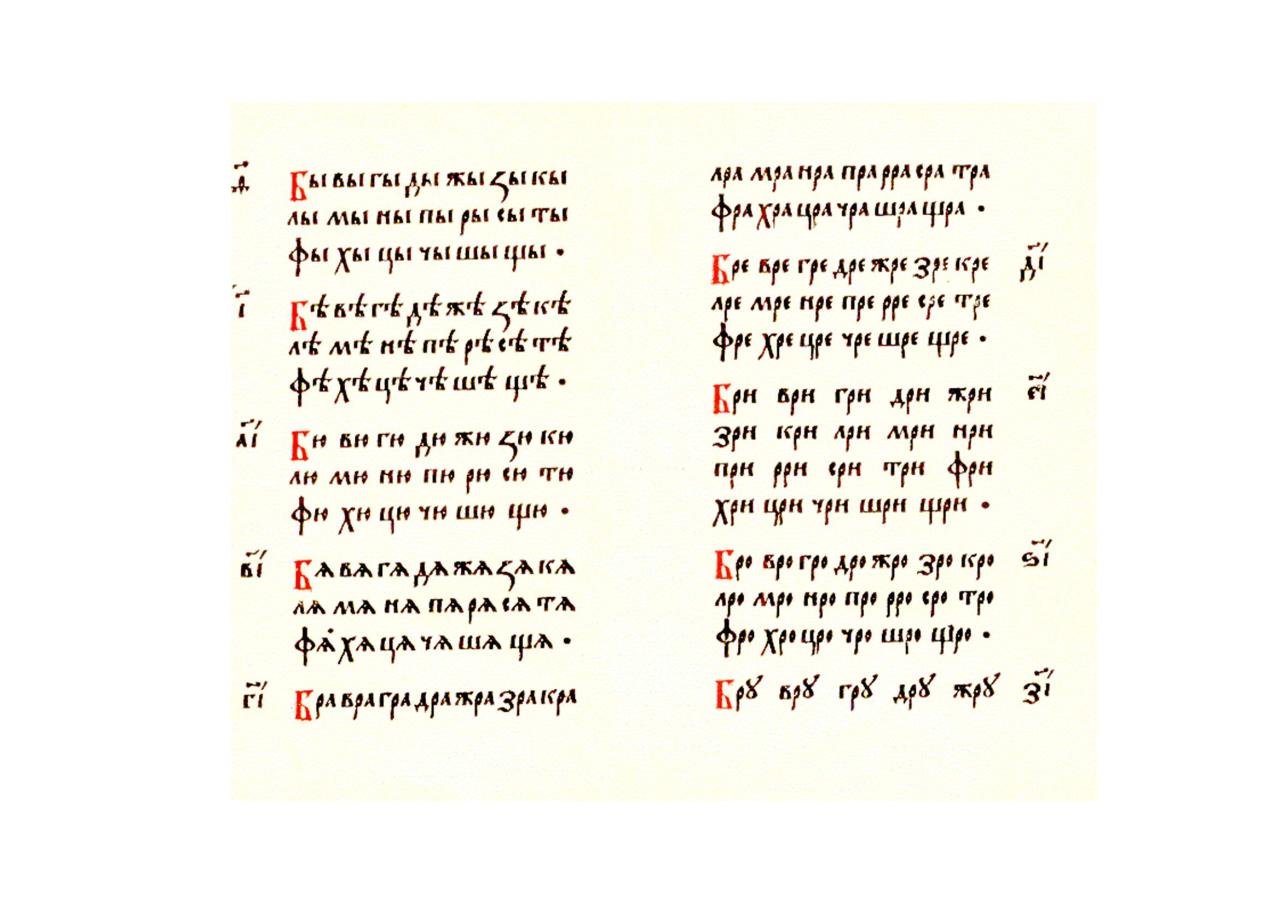 Бы вы гы ды жы ꙁы кы
лы мы ны пы ры сы ты
фы хы цы чы шы щы ·
і҃
Бѣ вѣ гѣ дѣ жѣ ꙁѣ кѣ
лѣ мѣ нѣ пѣ рѣ сѣ тѣ
фѣ хѣ цѣ чѣ шѣ щѣ ·
а҃і
Бю вю гю дю жю ꙁю кю
лю мю ню пю рю сю тю
фю хю цю чю шю щю ·
в҃і
Бѧ вѧ гѧ дѧ жѧ ꙁѧ кѧ
лѧ мѧ нѧ пѧ рѧ сѧ тѧ
фѧ хѧ цѧ чѧ шѧ щѧ ·
г҃і
Бра вра гра дра жра зра кра
лра мра нра пра рра сра тра
фра хра цра чра шра щра ·
Бре вре гре дре жре зре кре
д҃і
лре мре нре пре рре сре тре
фре хре цре чре шре щре ·
Бри ври гри дри жри
е҃і
зри кри лри мри нри
при рри сри три фри
хри цри чри шри щри ·
Бро вро гро дро жро зро кро
ѕ҃і
лро мро нро про рро сро тро
фро хро цро чро шро щро ·
Брꙋ врꙋ грꙋ дрꙋ жрꙋ
з҃і